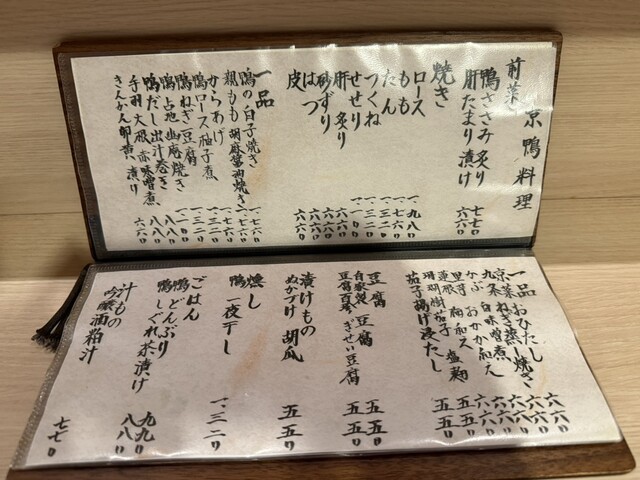 京鴨料理
前菜
鴨ささみ炙り 七七〇
肝たまり漬け 六六〇
焼き
ロース 一、九八〇
もも 一、七六〇
たん
つくね 一、三二〇
せせり
肝炙り 六六〇
砂ずり 六六〇
はつ 六六〇
皮 六六〇
一品
鴨の白子焼き 一、七六〇
粗もも胡麻醤油焼き
からあげ 一、三二〇
鴨ロース柚子煮 一、三二〇
鴨ねぎ豆腐
鴨占地幽庵焼き 八八〇
鴨だし出汁巻き 八八〇
手羽大根赤味噌煮 八八〇
きんかん卵黄漬り 六六〇
一品
京菜おひたし 六六〇
九条ねぎ蒸し焼き 六六〇
かぶ白味噌煮 六六〇
里芋おかか和え 六六〇
蓮根梅和え 六六〇
珊瑚樹茄子塩麹 五五〇
茄子揚げ浸たし 五五〇
豆腐
自家製豆腐 五五〇
豆腐百珍ぎせい豆腐 五五〇
漬けもの
ぬかづけ 五五〇
胡瓜 五五〇
燻し
鴨一夜干し 一、三二〇
ごはん
鴨どんぶり 九九〇
鴨しぐれ茶漬け 八八〇
汁もの
吟醸酒粕汁 七七〇